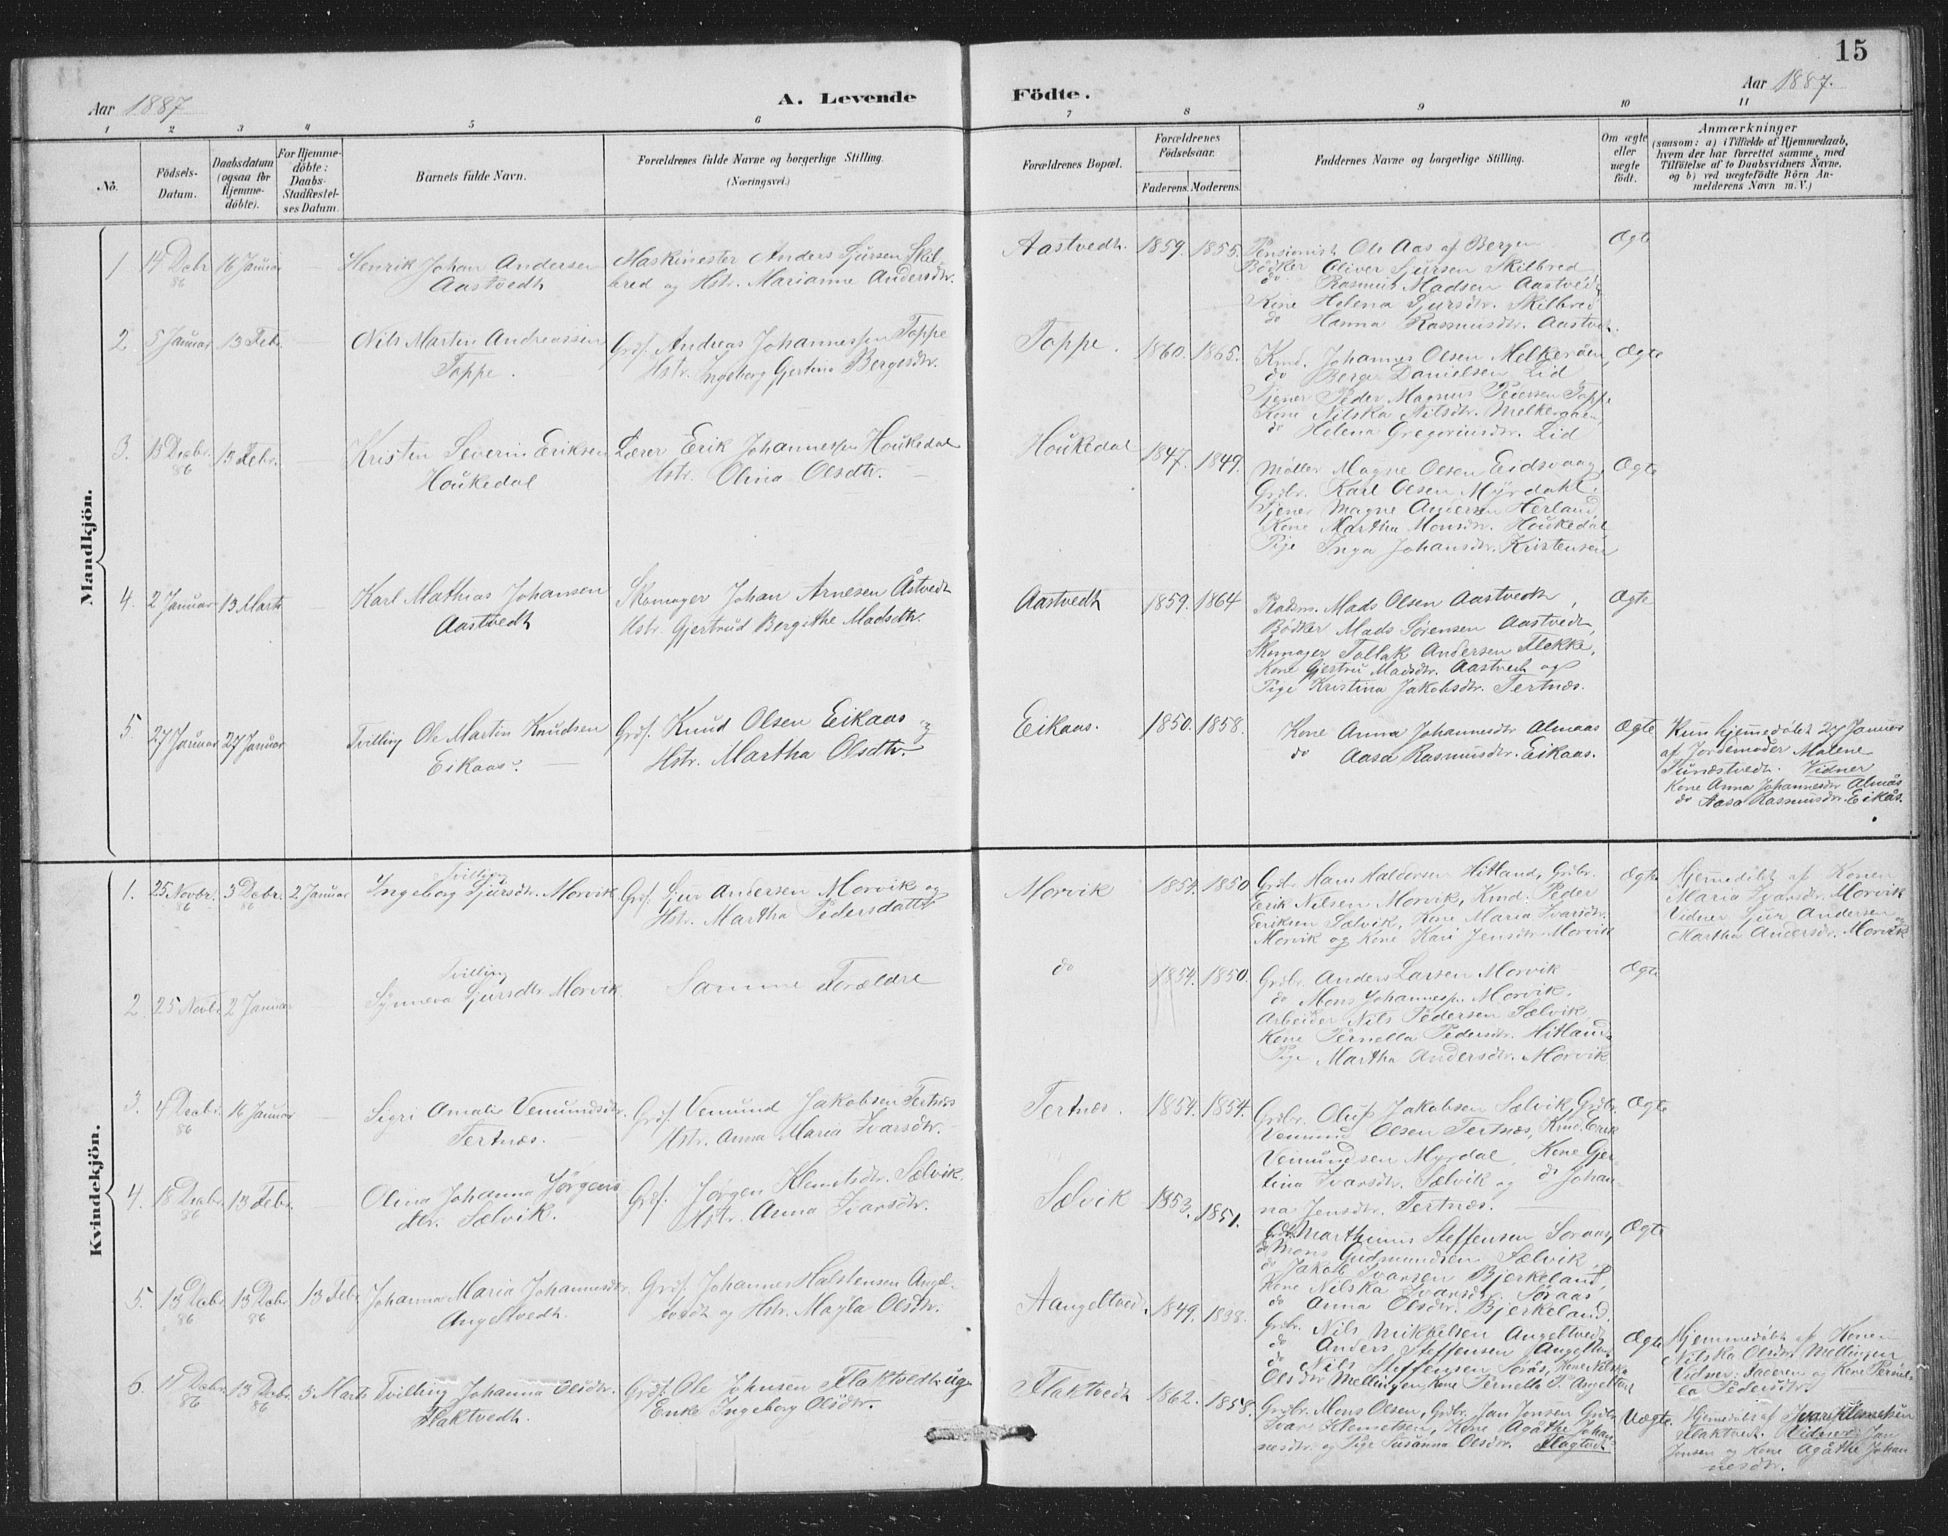 15
Aar 1887
A. Levende Födte.
Aar 1887.
1 2 3 4 5 6 7 8 9 10 11
No.
Födsels-Datum.
Daabsdatum (ogsaa for Hjemmedöbte).
For Hjemmedöbte: Daabs-Stadfæstelses Datum.
Barnets fulde Navn.
Forældrenes fulde Navne og borgerlige Stilling.
(Næringsvei.)
Forældrenes Bopæl.
Forældrenes Födselsaar.
Faderens. Moderens.
Faddernes Navne og borgerlige Stilling.
Om ægte eller uægte födt.
Anmærkninger
(saasom: a) i Tilfælde af Hjemmedaab, hvem der har forrettet samme, med Tilföielse af to Daabsvidners Navne, og b) ved uægtefödte Börn Anmelderens Navn m. V.)
Mandkjön.
1 14 Decbr 86 16 Januar
Henrik Johan Andersen
Aastvedt
Maskinester Anders Sjursen Skil-
bred og Hstr. Marianne Andersdtr.
Aastvedt. 1859. 1855.
Pensionist Ole Aas af Bergen
Bödker Oliver Sjursen Skilbred
do Rasmus Madsen Aastvedt
Kone Helena Sjursdtr. Skilbred
do Hanna Rasmusdtr. Aastvedt.
Ægte
2. 5 Januar 13 Febr.
Nils Martin Andreassen
Toppe.
Grdf. Andreas Johannessen Toppe
Hstr. Ingeborg Gjertina Bergesdtr.
Toppe. 1860. 1865.
Kmd. Johannes Olsen Melkeröen,
do Berge Danielsen Lid
Tjener Peder Magnus Pedersen Toppe
Kone Nilska Nilsdtr. Melkeröen
do Helena Gregoriusdtr. Lid
Ægte
3. 18 Decbr. 86 13 Febr.
Kristen Severin Eriksen
Houkedal
Lærer Erik Johannessen Houkedal
Hstr. Olina Olsdtr.
Houkedal 1847. 1849.
Møller Magne Olsen Eidsvaag
Grdbr. Karl Olsen Myrdahl.
Tjener Magne Andersen Herland,
Kone Martha Monsdtr. Houkedal
Pige Inga Johansdtr. Kristensen
Ægte
4. 2 Januar 13 Marts
Karl Mathias Johansen
Aastvedt
Skomager Johan Arnesen Åstvedt
Hstr. Gjertrud Bergithe Madsdtr.
Aastvedt 1859. 1864
Mads Olsen Aastvedt,
Bödker Mads Sörensen Aastvedt,
Skomager Tollak Andersen Flekke,
Kone Gjertru Madsdtr. Aastvedt og
Pige Kristina Jakobsdtr. Tertnæs.
Ægte
5. 27 Januar 27 Januar
Tvilling Ole Martin Knudsen
Eikaas.
Grdf. Knud Olsen Eikaas og
Hstr. Martha Olsdtr.
Eikaas. 1850. 1858.
Kone Anna Johannesdtr Almaas
do Aasa Rasmusdtr. Eikaas.
Ægte
Kun hjemedöbt 27 Januar
af Jordemoder Malene
Kone Anna Johannesdtr Almås
do Aasa Rasmusdtr. Eikås.
Vidner
Kvindekjön.
1. 25 Novbr. 86 3 Decbr. 86 2 Januar
Tvilling
Ingeborg Sjursdtr. Morvik
Grdf. Sjur Andersen Morvik og
Hstr. Martha Pedersdatter
Morvik 1854. 1850
Grdbr Hans Haldorsen Hitland, Grdbr.
Erik Nilsen Morvik, Kmd. Peder
Eriksen Sælvik, Kone Maria Ivarsdtr.
Morvik og Kone Kari Jensdtr. Morvik
Ægte
Hjemmedöbt af Konen
Maria Ivarsdtr. Morvik
Vidner Sjur Andersen og
Martha Andersdtr. Morvik
2. 25 Novbr 2 Januar
Tvilling
Synneva Sjursdtr Morvik.
Samme Forældre
do 1854. 1850.
Grdbr. Anders Larsen Morvik
do Mons Johannessen Morvik.
Arbeider Nils Pedersen Sælvik,
Kone Pernella Pedersdtr. Hitland
Pige Martha Andersdtr. Morvik
Ægte
3. 4 Decbr. 86 16 Januar
Sigri Amalie Vemundsdtr.
Tertnæs.
Grdf. Vemund Jakobsen Tertnæs
Hstr. Anna Maria Ivarsdtr.
Tertnæs. 1854. 1854.
Grdbr. Oluf Jakobsen Sælvik, Grdbr.
Vemund Olsen Tertnæs, Kmd. Erik
Vemundsen Myrdal, Kone Gjer-
tina Ivarsdtr. Sælvik og do Johan-
na Jensdtr. Tertnæs.
Ægte
4. 18 Decbr. 86 13 Febr.
Olina Johanna Jörgens
dtr. Sælvik.
Grdf. Jörgen Klemetsdtr. Sælvik.
Hstr. Anna Ivarsdtr.
Sælvik 1853. 1851.
Marthinus Steffensen Soraas,
do Mons Gudmundsen Sælvik
do Jakob Ivarsen Bjerkeland,
Kone Nilska Ivarsdtr. Soraas,
do Anna Olsdtr. Bjerkeland.
Ægte
5. 13 Decbr 86 13 Decbr 86 13 Febr
Johanna Maria Johannesdtr
Angeltvedt.
Grdf. Johannes Halstensen Angel-
tvedt og Hstr. Magla Olsdtr.
Aangeltvedt. 1849. 1838.
Grdbr. Nils Mikkelsen Angeltvedt
do Anders Steffensen Angeltvedt
do Nils Steffensen Sörås, Kone Nilska
Olsdtr Mellingen, Kone Pernella P. Angeltvedt
Ægte
Hjemmedöbt af Konen
Nilska Olsdtr Mellingen
Vidner. Faderen og Kone Pernil-
la Pedersdtr.
6. 11 Decbr 86 13 Decbr. 86 3 Marts
Tvilling Johanna Olsdtr.
Flaktvedt.
Grdf. Ole Johnsen Flaktvedt og
Enke Ingeborg Olsdtr.
Flaktvedt 1862. 1858.
Grdbr. Mons Olsen, Grdbr. Jan Jonsen Grdbr
Ivar Klemetsen, Kone Agåthe Johan-
nesdtr. og Pige Susanna Olsdtr. Flagtvedt
Uægte.
Hjemedöbt af Ivar Klemetsen
Flaktvedt. Vidner: Jan
Jonsen og Kone Agåthe Johan
nesdtr.